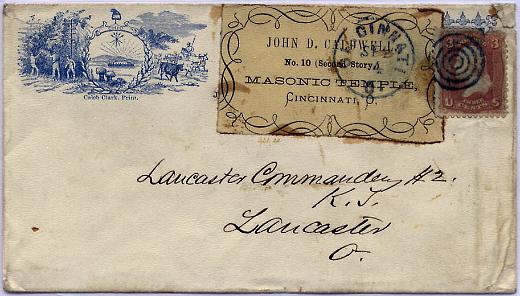 Caleb Clark, Print.
JOHN D. CALDWELL,
No. 10 (Second Story)
MASONIC TEMPLE,
CINCINNATI, O.
CINCINNATI
4
3
3
U
S
Lancaster Commandery #2.
K. T.
Lancaster
O.